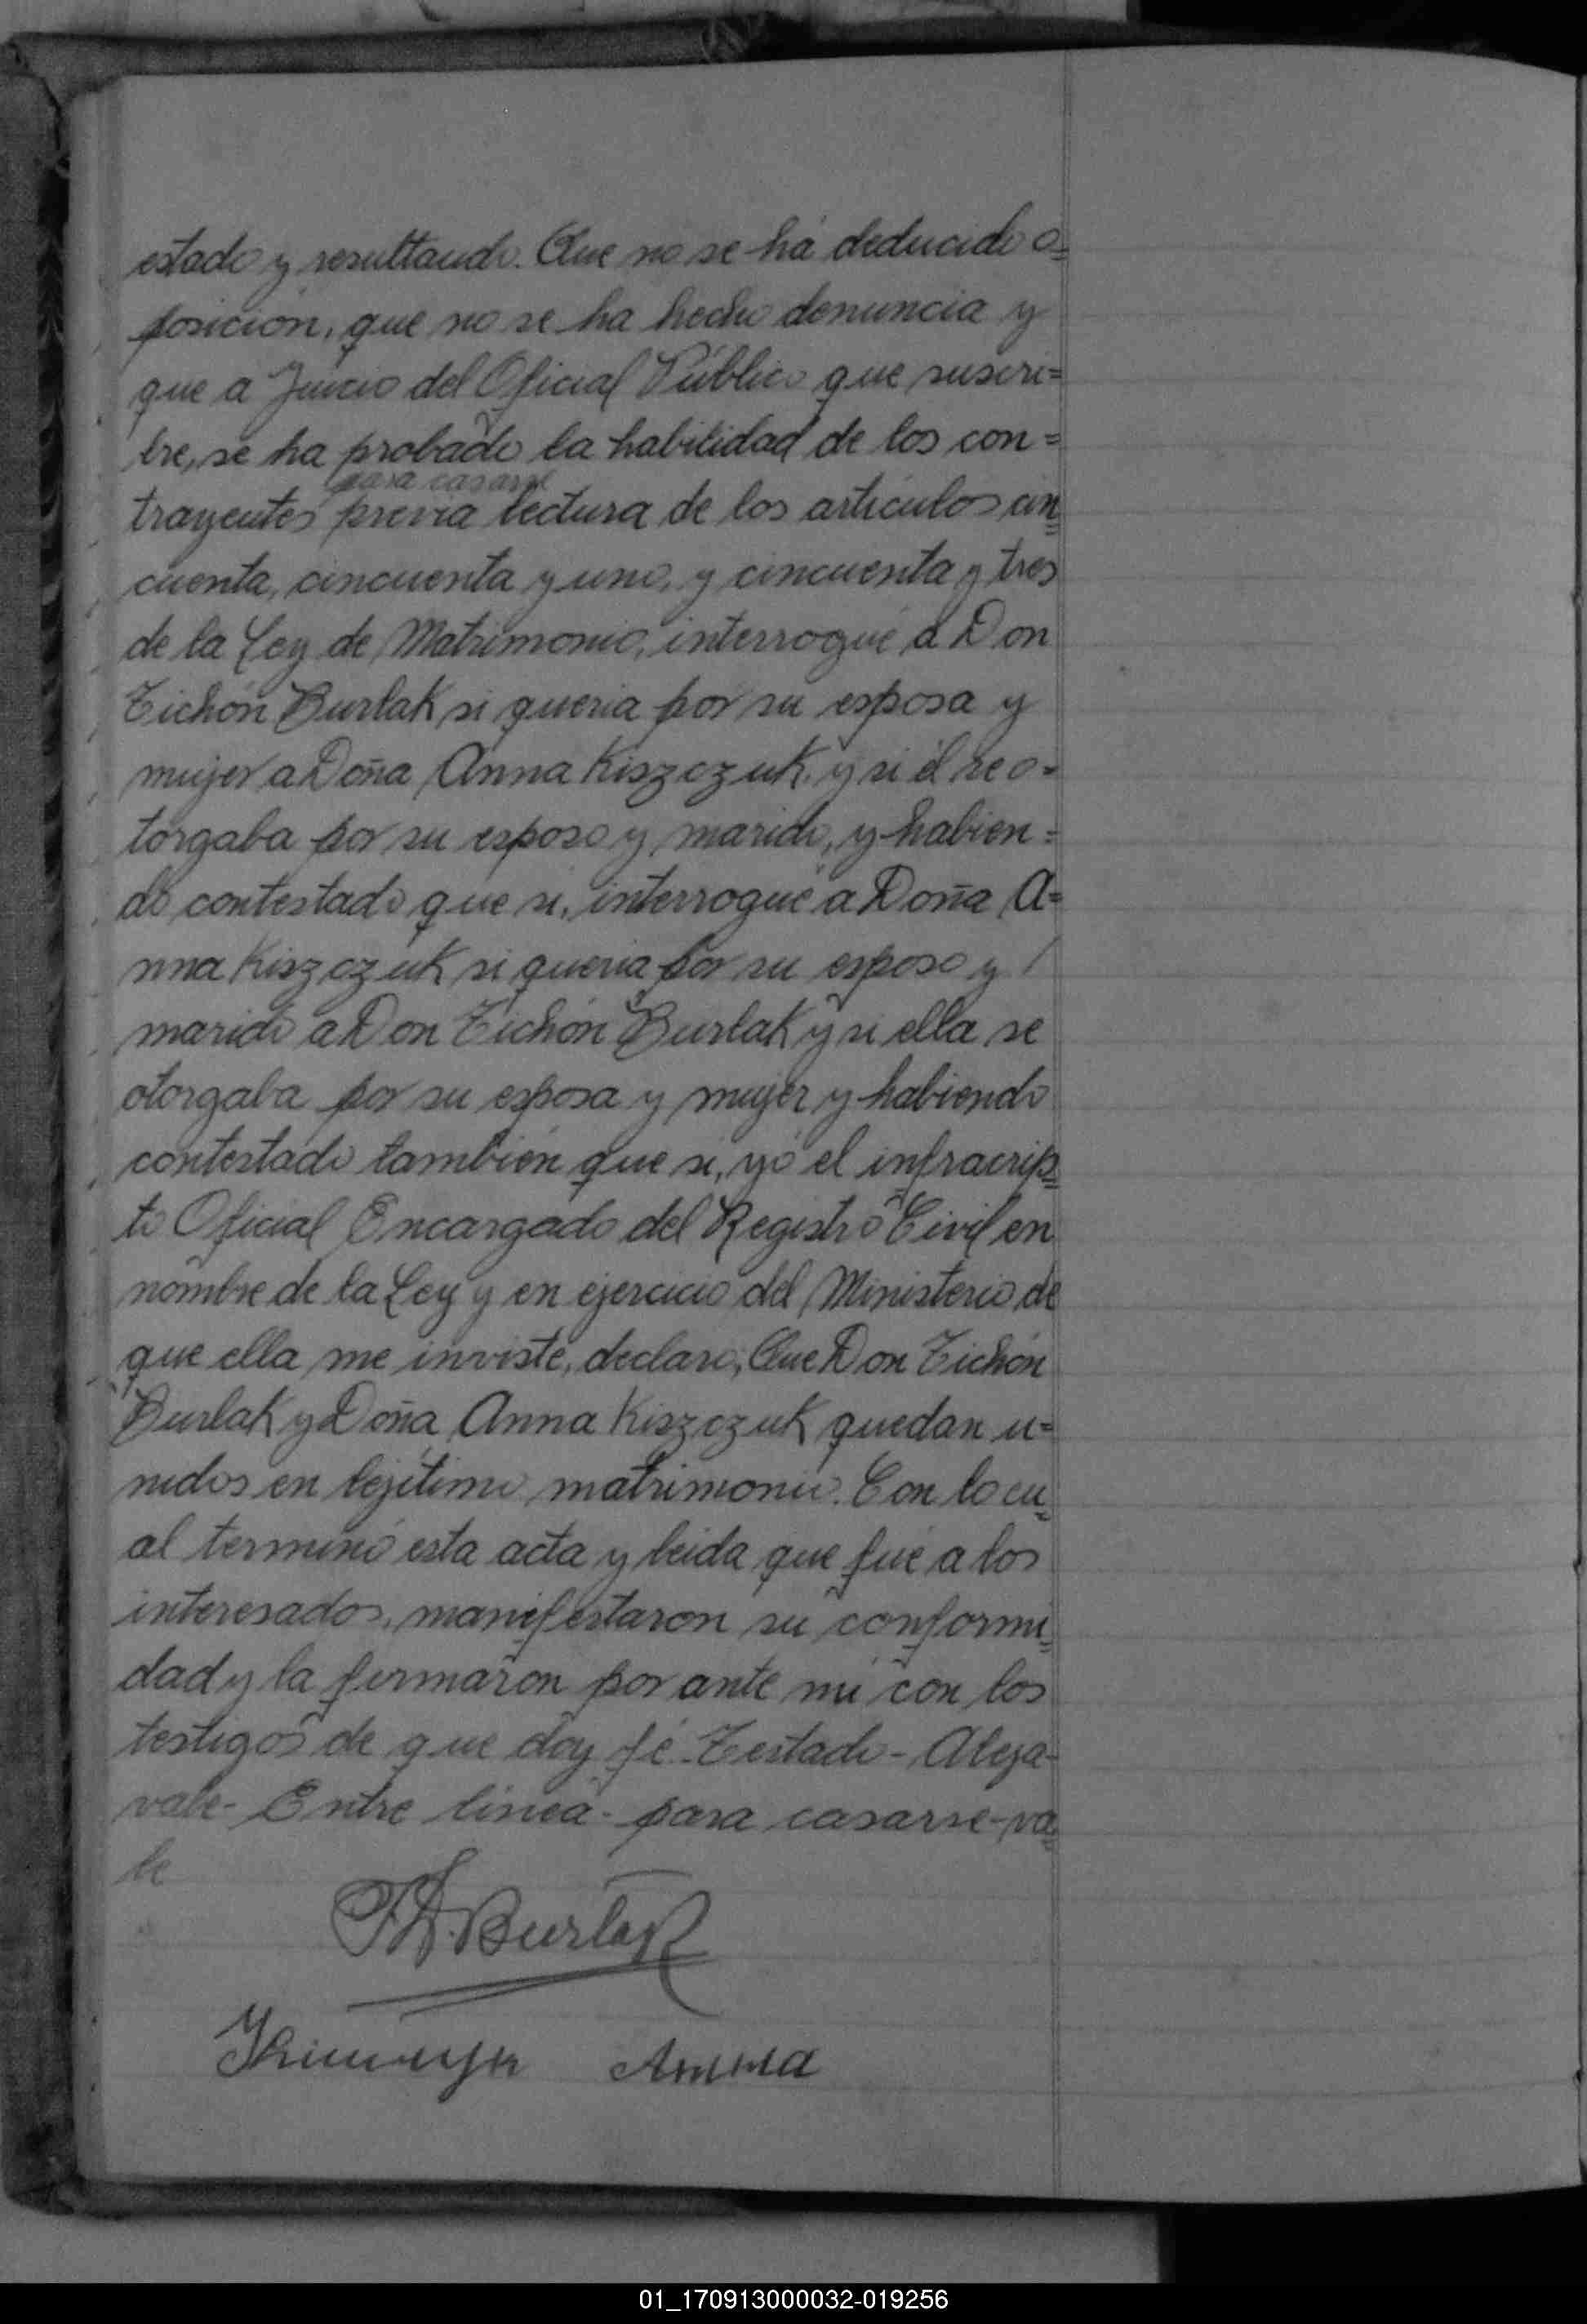 estado y resultando. Que no se há deducido o=
posición, que no se ha hecho denuncia y
que a Juicio del Oficial Público que suscri=
bre, se ha probado la habilidad de los con=
para casarse
trayentes previa lectura de los artículos cin=
cuenta, cincuenta y uno, y cincuenta y tres
de la Ley de Matrimonio, interrogué a Don
Tichón Burlak si queria por su esposa y
mujer a Doña Anna Kiszczuk y si él se o=
torgaba por su esposo y marido, y habien=
do contestado que si, interrogué a Doña A=
nna Kiszczuk si queria por su esposo y /
marido a Don Tichón Burlak y si ella se
otorgaba por su esposa y mujer y habiendo
contestado también que si, yo el infracrip=
to Oficial Encargado del Registro Civil en
nombre de la Ley y en ejercicio del Ministerio de
que ella me inviste, declaro; Que Don Tichón
Burlak y Doña Anna Kiszczuk quedan u=
nidos en lejítimo matrimonio. Con lo cu=
al terminó esta acta y leida que fué a los
interesados, manifestaron su conformi=
dad y la firmaron por ante mi con los
testigos de que doy fé. Testado - Aleja-
vale - Entre linea - para casarse - va=
le
Burlak
Анна
01_170913000032-019256